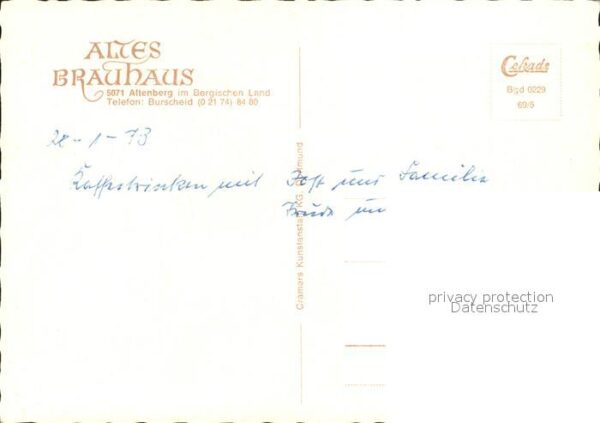 ALTES
BRAUHAUS
5071 Altenberg im Bergischen Land
Telefon: Burscheid (0 21 74) 84 80
Cekade
B g d 0229
69/6
-1-73
Kaffeetrinken mit und Familie
Cramers Kunstanstalt KG, Dortmund
privacy protection
Datenschutz